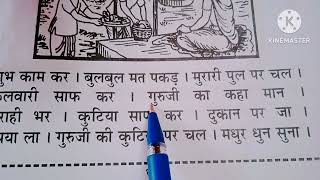 KINEMASTER
काम कर । बुलबुल मत पकड़ । मुरारी पुल पर चल ।
साफ कर । गुरुजी का कहा मान ।
भर । कुटिया कर । दुकान पर जा
ला । गुरुजी की पर चल । मधुर धुन सुना ।